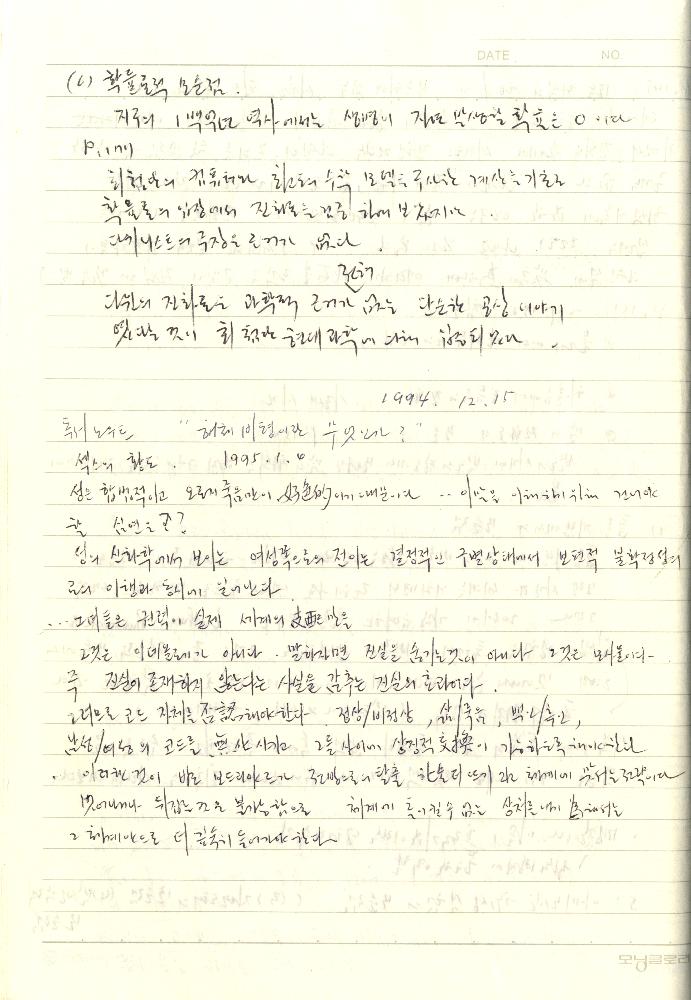 DATE NO.
(C) 확률론적 모순점.
지구의 1백억년 역사에서는 생명이 자연발생할 확률은 0 이다
P.177
최첨단의 컴퓨터와 최고도의 수학 모델을 구사한 계산을 기초로
확률론의 입장에서 진화론을 검증 하여 보았지만
다위니스트의 주장은 근거가 없다.
전혀
다윈의 진화론은 과학적 근거가 없는 단순한 공상 이야기
였다는 것이 최첨단 현대과학에 의해 입증되었다.
1994. 12. 15
독서노우트 " 허헤미형이란 무엇인가? "
섹스의 황도. 1995. 1. 4
성은 합법적이고 오로지 죽음만이 好色的이기 때문이다 .. 이 말을 이해하기 위해 건너야
할 심연은?
성의 신화학에서 보이는 여성쪽으로의 전이는 결정적인 구별상태에서 보편적 불확정성의
로의 이행과 동시에 일어난다
... 그녀들은 권력이 실제 세계의 支配만을
그것은 이데올로기가 아니다. 말하자면 진실을 숨기는 것이 아니다 그것은 모사물이다-
즉 진실이 존재하지 않는다는 사실을 감추는 진실의 효과이다.
그러므로 코드 자체를 否認해야 한다 정상/비정상, 삶/죽음, 백인/흑인,
남성/여성의 코드를 無化시키고 그들 사이에 상징적 交換이 가능하도록 해야 한다
... 이러한 것이 바로 보드리야르가 전방으로의 탈출 하술의 뜨기 라고 체계에 맞서는 전략이다
벗어나거나 뒤집는 것은 불가능함으로 체계에 돌이킬 수 없는 상처를 내기 爲해서는
그 체계안으로 더 깊숙히 들어가야 한다-
모닝글로리